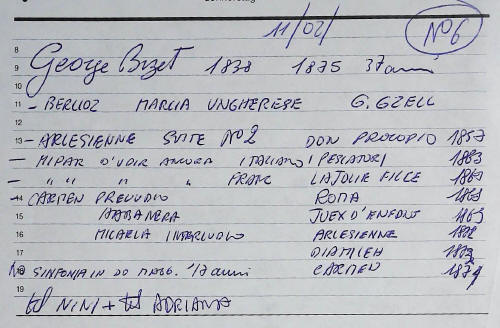 Donnerstag
11/02/ N°6
8
9 George Bizet 1838 1875 37 anni
10
11 - BERLIOZ MARCIA UNGHERESE G. GZELL
12
13 - ARLESIENNE SUITE N°2 DON PROCOPIO 1857
- MIPAR D'UDIR ANCORA ITALIANO I PESCATORI 1863
- " " " " FRANC LA JOLIE FILLE 1867
14 - CARMEN PRELUDIO ROMA 1868
15 HABANERA JUEX D'ENFANT
16 MICAELA INTERLUDIO ARLESIENNE 1872
17 DIAMILEH
18 SINFONIA IN DO MAGG. 17 anni CARMEN
19
tel NINI + tel ADRIANA